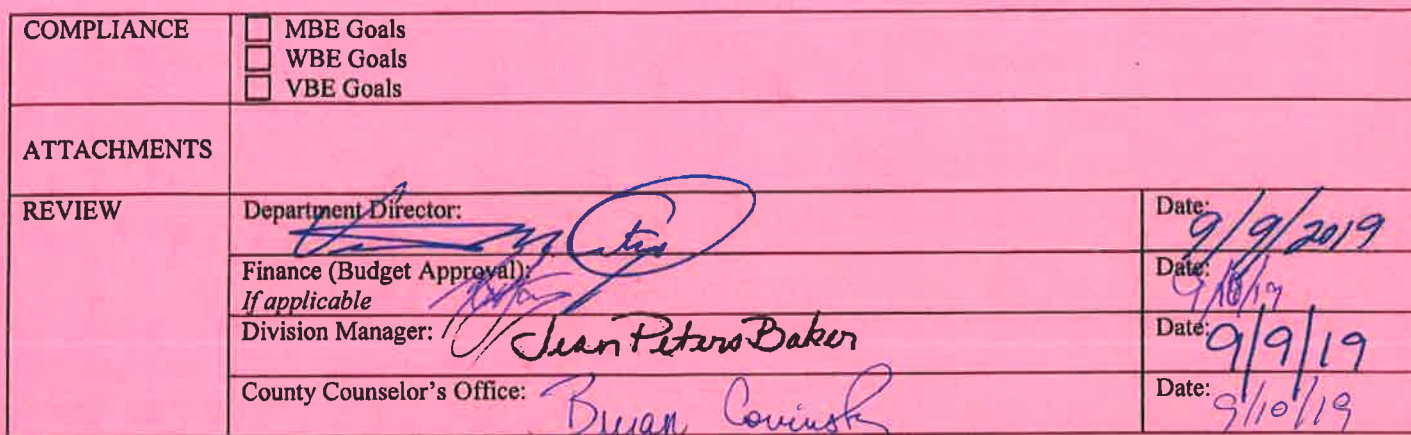 COMPLIANCE
MBE Goals
WBE Goals
VBE Goals
ATTACHMENTS
REVIEW
Department Director:
Date: 9/9/2019
Finance (Budget Approval):
If applicable
Date:
Division Manager: Jean Peters Baker
Date: 9/9/19
County Counselor's Office: Bryan Covinsky
Date: 9/10/19